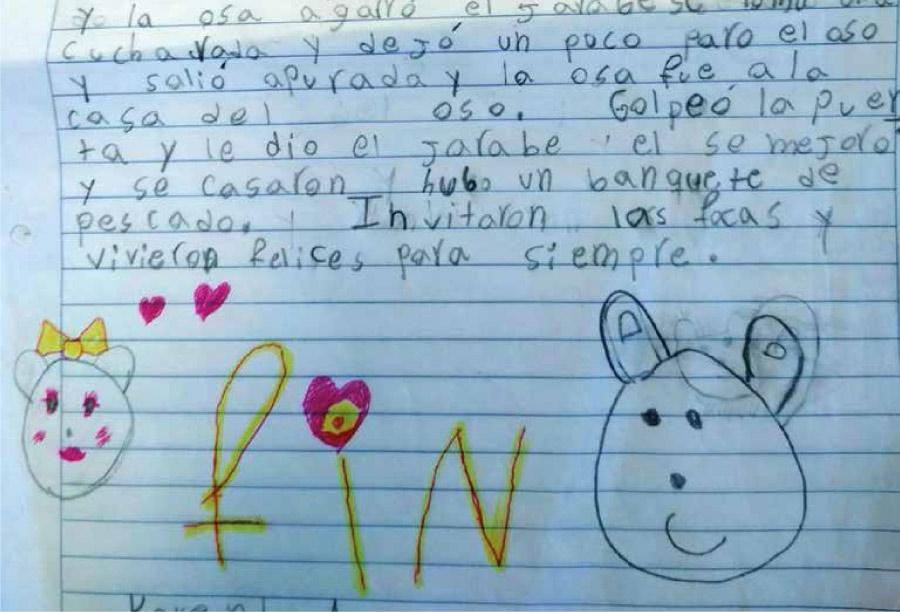 y la osa agarró el jarabe se tomó una
cucharada y dejó un poco paro el oso
y salió apurada y la osa fue a la
casa del oso. Golpeó la puer
ta y le dio el jarabe el se mejoro
y se casaron hubo un banquete de
pescado. Invitaron las focas y
vivieron felices para siempre.
fiN